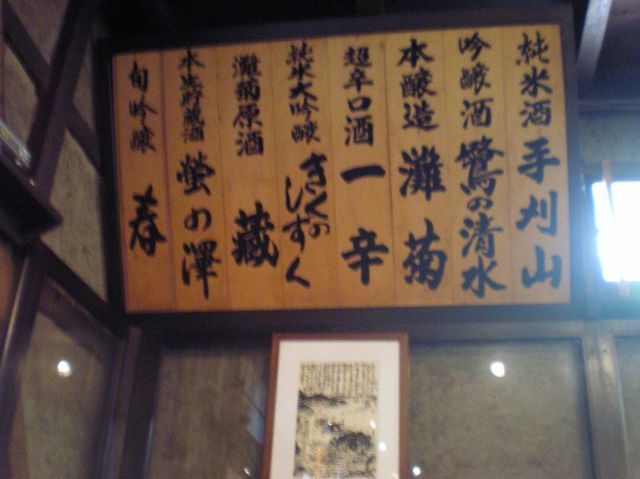 純米酒 手刈山
吟醸酒 鷲の清水
本醸造 灘菊
超辛口酒 一辛
純米大吟醸 きくのしずく
灘菊原酒 藏
本生貯蔵酒 螢の澤
旬吟醸 春